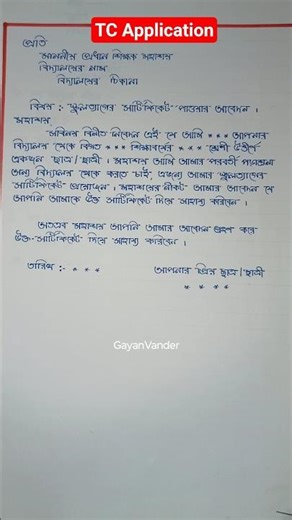 TC Application
প্রতি
মাননীয় প্রধান শিক্ষক মহাশয়
বিদ্যালয়ের নাম
বিদ্যালয়ের ঠিকানা
বিষয় :- স্কুলত্যাগের সার্টিফিকেট পাওয়ার আবেদন ।
মহাশয়
সবিনয় বিনীত নিবেদন এই যে আমি * * * আপনার
বিদ্যালয় থেকে বিগত * * * শিক্ষাবর্ষের * * * শ্রেণী উত্তীর্ণ
একজন ছাত্র / ছাত্রী । মহাশয় আমি আমার পরবর্তী পড়াশুনা
অন্য বিদ্যালয় থেকে করতে চাই, এজন্য আমার স্কুলত্যাগের
সার্টিফিকেট প্রয়োজন । মহাশয়ের নীকট আমার আবেদন যে
আপনি আমাকে উক্ত সার্টিফিকেট দিয়ে সাহায্য করিবেন ।
অতএব মহাশয় আপনি আমার আবেদন গ্রহণ করে
উক্ত সার্টিফিকেট দিয়ে সাহায্য করিবেন ।
তারিখ :- * * *
আপনার প্রিয় ছাত্র / ছাত্রী
* * * *
GayanVander